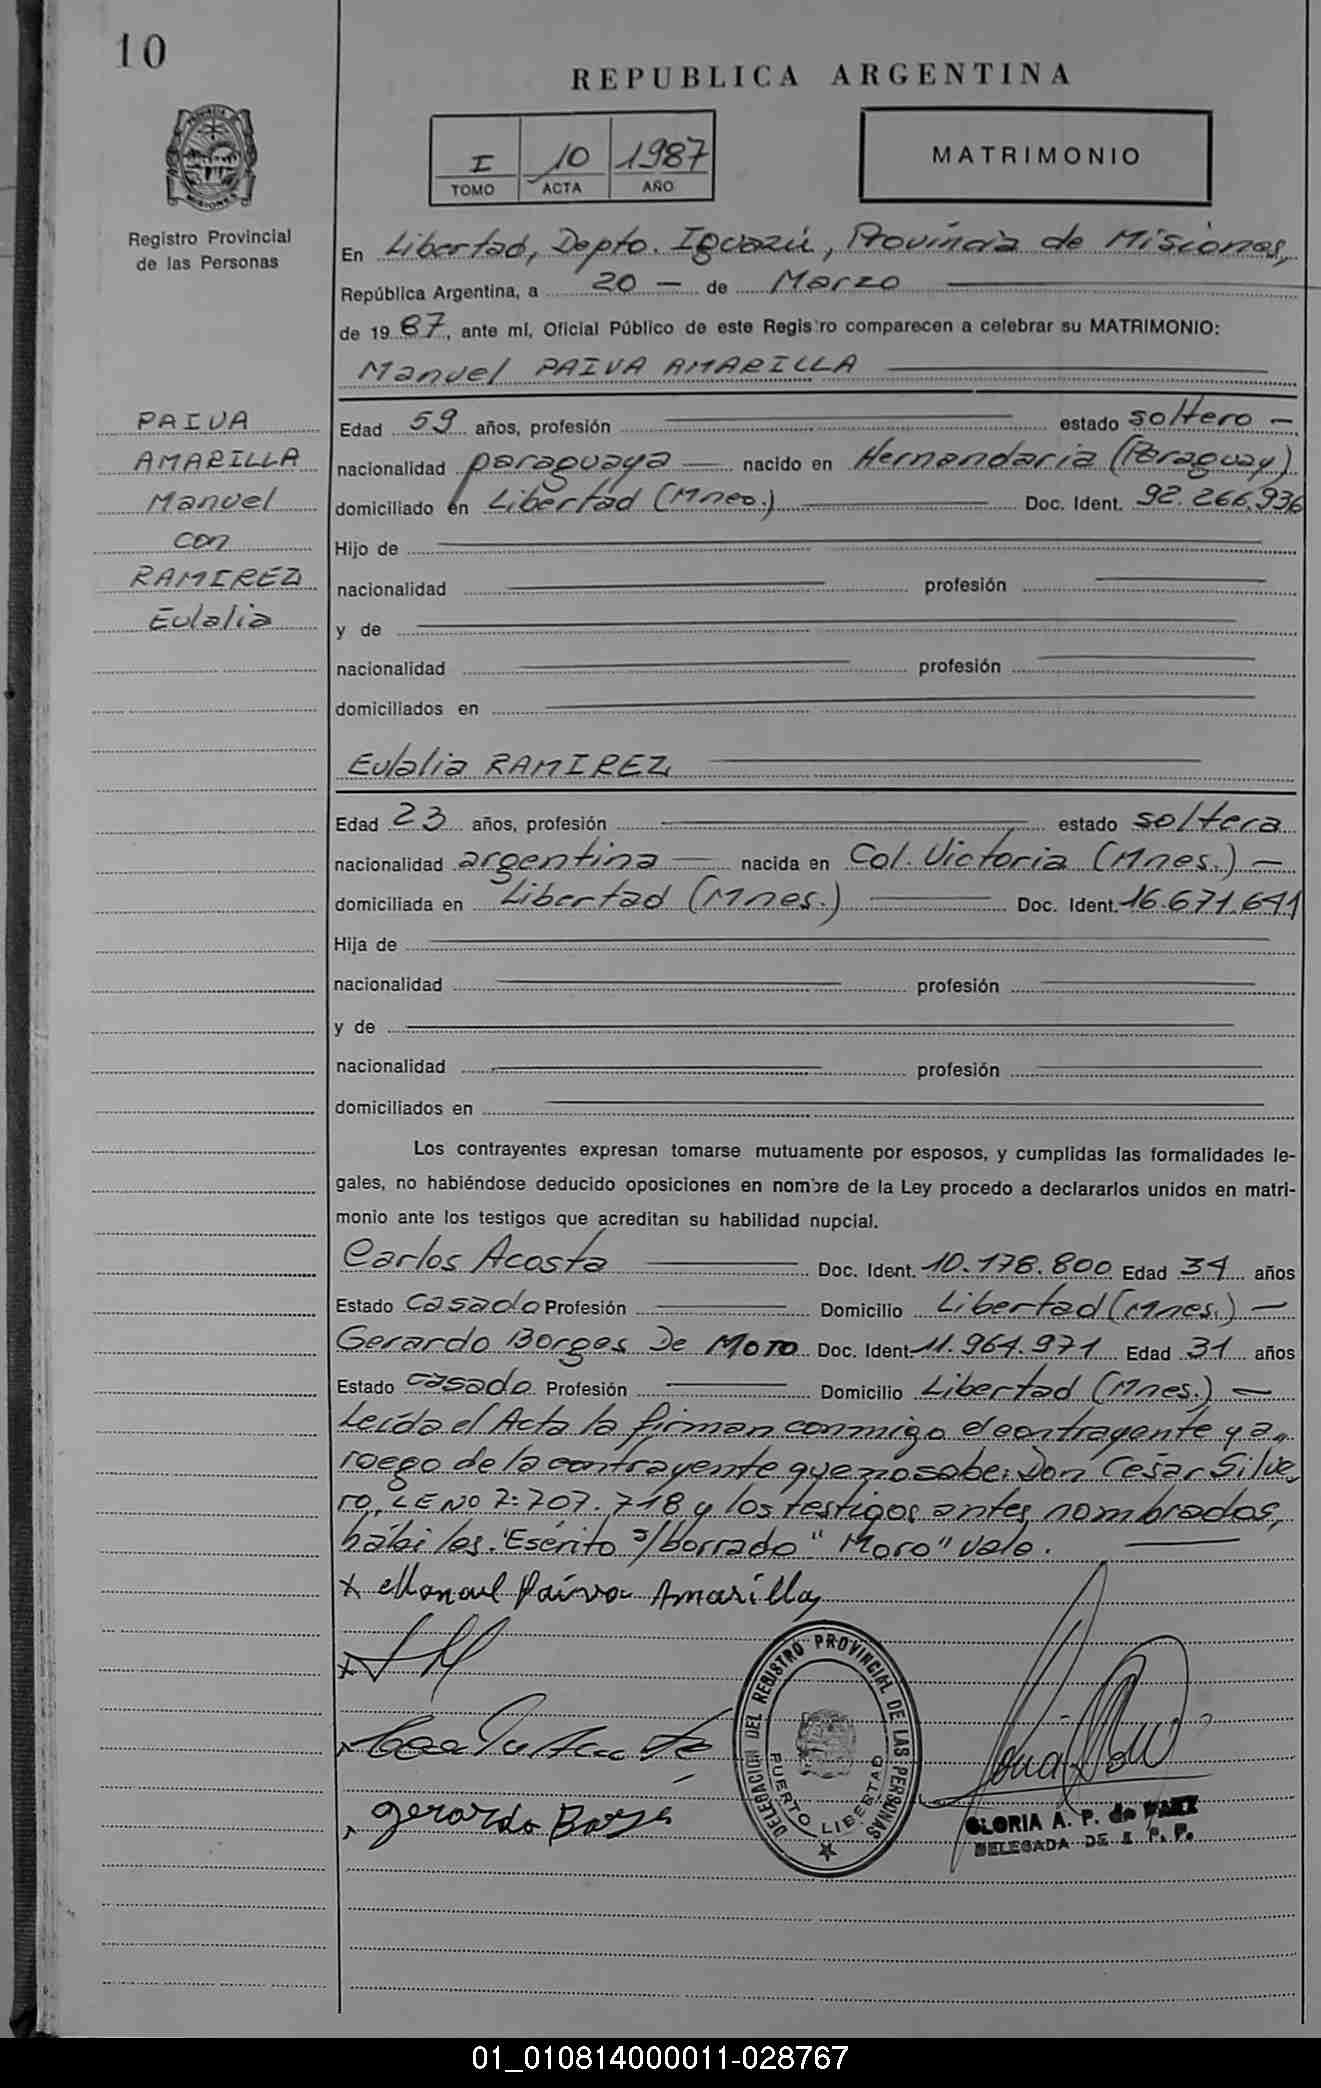 10
REPUBLICA ARGENTINA
I 10 1987
TOMO ACTA AÑO
MATRIMONIO
PROVINCIA DE MISIONES
Registro Provincial
de las Personas
En Libertad, Depto. Iguazú, Provincia de Misiones,
República Argentina, a 20 — de Marzo
de 1987, ante mí, Oficial Público de este Registro comparecen a celebrar su MATRIMONIO:
Manuel PAIVA AMARILLA
PAIVA
AMARILLA
Manuel
con
RAMIREZ
Eulalia
Edad 59 años, profesión estado soltero —
nacionalidad paraguaya — nacido en Hernandaria (Paraguay)
domiciliado en Libertad (Mnes.) Doc. Ident. 92.266.936
Hijo de
nacionalidad profesión
y de
nacionalidad profesión
domiciliados en
Eulalia RAMIREZ
Edad 23 años, profesión estado soltera
nacionalidad argentina — nacida en Col. Victoria (Mnes.) —
domiciliada en Libertad (Mnes.) Doc. Ident. 16.671.641
Hija de
nacionalidad profesión
y de
nacionalidad profesión
domiciliados en
Los contrayentes expresan tomarse mutuamente por esposos, y cumplidas las formalidades le-
gales, no habiéndose deducido oposiciones en nombre de la Ley procedo a declararlos unidos en matri-
monio ante los testigos que acreditan su habilidad nupcial.
Carlos Acosta Doc. Ident. 10.178.800 Edad 34 años
Estado casado Profesión Domicilio Libertad (Mnes.) —
Gerardo Borges De MORO Doc. Ident. 11.964.971 Edad 31 años
Estado casado Profesión Domicilio Libertad (Mnes.) —
Leída el Acta la firman conmigo el contrayente y a
ruego de la contrayente que no sabe: Don César Silve
ro, LE Nº 7.707.718 y los testigos antes nombrados,
hábiles. "Escrito s/borrado" "Moro" vale.
x Manuel Paiva Amarilla
x
Gerardo Borges
DELEGACION DEL REGISTRO PROVINCIAL DE LAS PERSONAS
PUERTO LIBERTAD
GLORIA A. P. de PAEZ
DELEGADA DE I P. P.
01_010814000011-028767